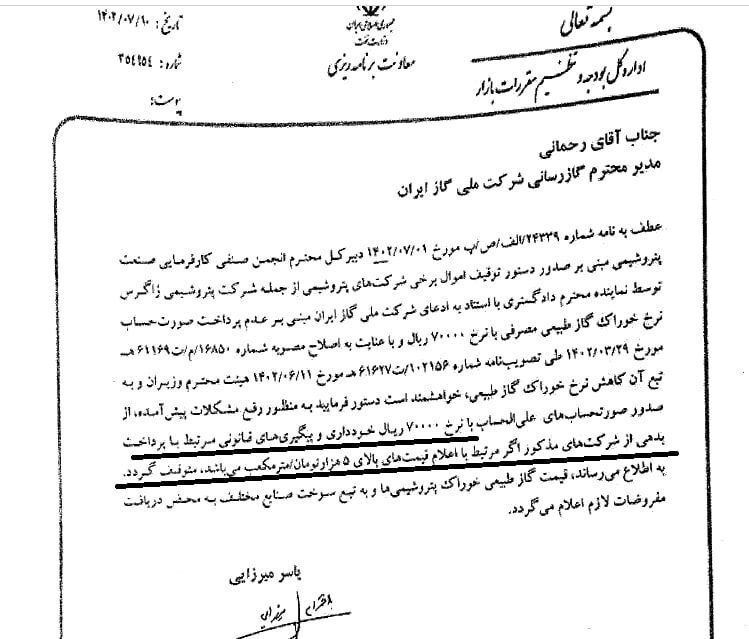 بسمه تعالی
جمهوری اسلامی ایران
وزارت نفت
معاونت برنامه ریزی
تاریخ : ۱۴۰۲/۰۷/۱۰
شماره : ۳۵۴۹۵۴
پیوست:
اداره کل بودجه و تنظیم مقررات بازار
جناب آقای رحمانی
مدیر محترم گازرسانی شرکت ملی گاز ایران
عطف به نامه شماره ۲۴۳۳۹/الف/ص/پ مورخ ۱۴۰۲/۰۷/۰۱ دبیرکل محترم انجمن صنفی کارفرمایی صنعت
پتروشیمی مبنی بر صدور دستور توقیف اموال برخی شرکت‌های پتروشیمی از جمله شرکت پتروشیمی زاگرس
توسط نماینده محترم دادگستری با استناد به ادعای شرکت ملی گاز ایران مبنی بر عدم پرداخت صورت‌حساب
نرخ خوراک گاز طبیعی مصرفی با نرخ ۷۰۰۰۰ ریال و با عنایت به اصلاح مصوبه شماره ۱۶۸۵۰/م/ت۶۱۱۶۹هـ
مورخ ۱۴۰۲/۰۳/۲۹ طی تصویب‌نامه شماره ۱۰۲۱۵۶/ت۶۱۶۲۷هـ مورخ ۱۴۰۲/۰۶/۱۱ هیئت محترم وزیران و به
تبع آن کاهش نرخ خوراک گاز طبیعی، خواهشمند است دستور فرمایید به منظور رفع مشکلات پیش‌آمده، از
صدور صورتحساب‌های علی‌الحساب با نرخ ۷۰۰۰۰ ریال خودداری و پیگیری‌های قانونی مرتبط با پرداخت
بدهی از شرکت‌های مذکور اگر مرتبط با اعلام قیمت‌های بالای ۵ هزارتومان/مترمکعب می‌باشد، متوقف گردد.
به اطلاع می‌رساند، قیمت گاز طبیعی خوراک پتروشیمی‌ها و به تبع سوخت صنایع مختلف به محض دریافت
مفروضات لازم اعلام می‌گردد.
یاسر میرزایی
با احترام
میرزایی